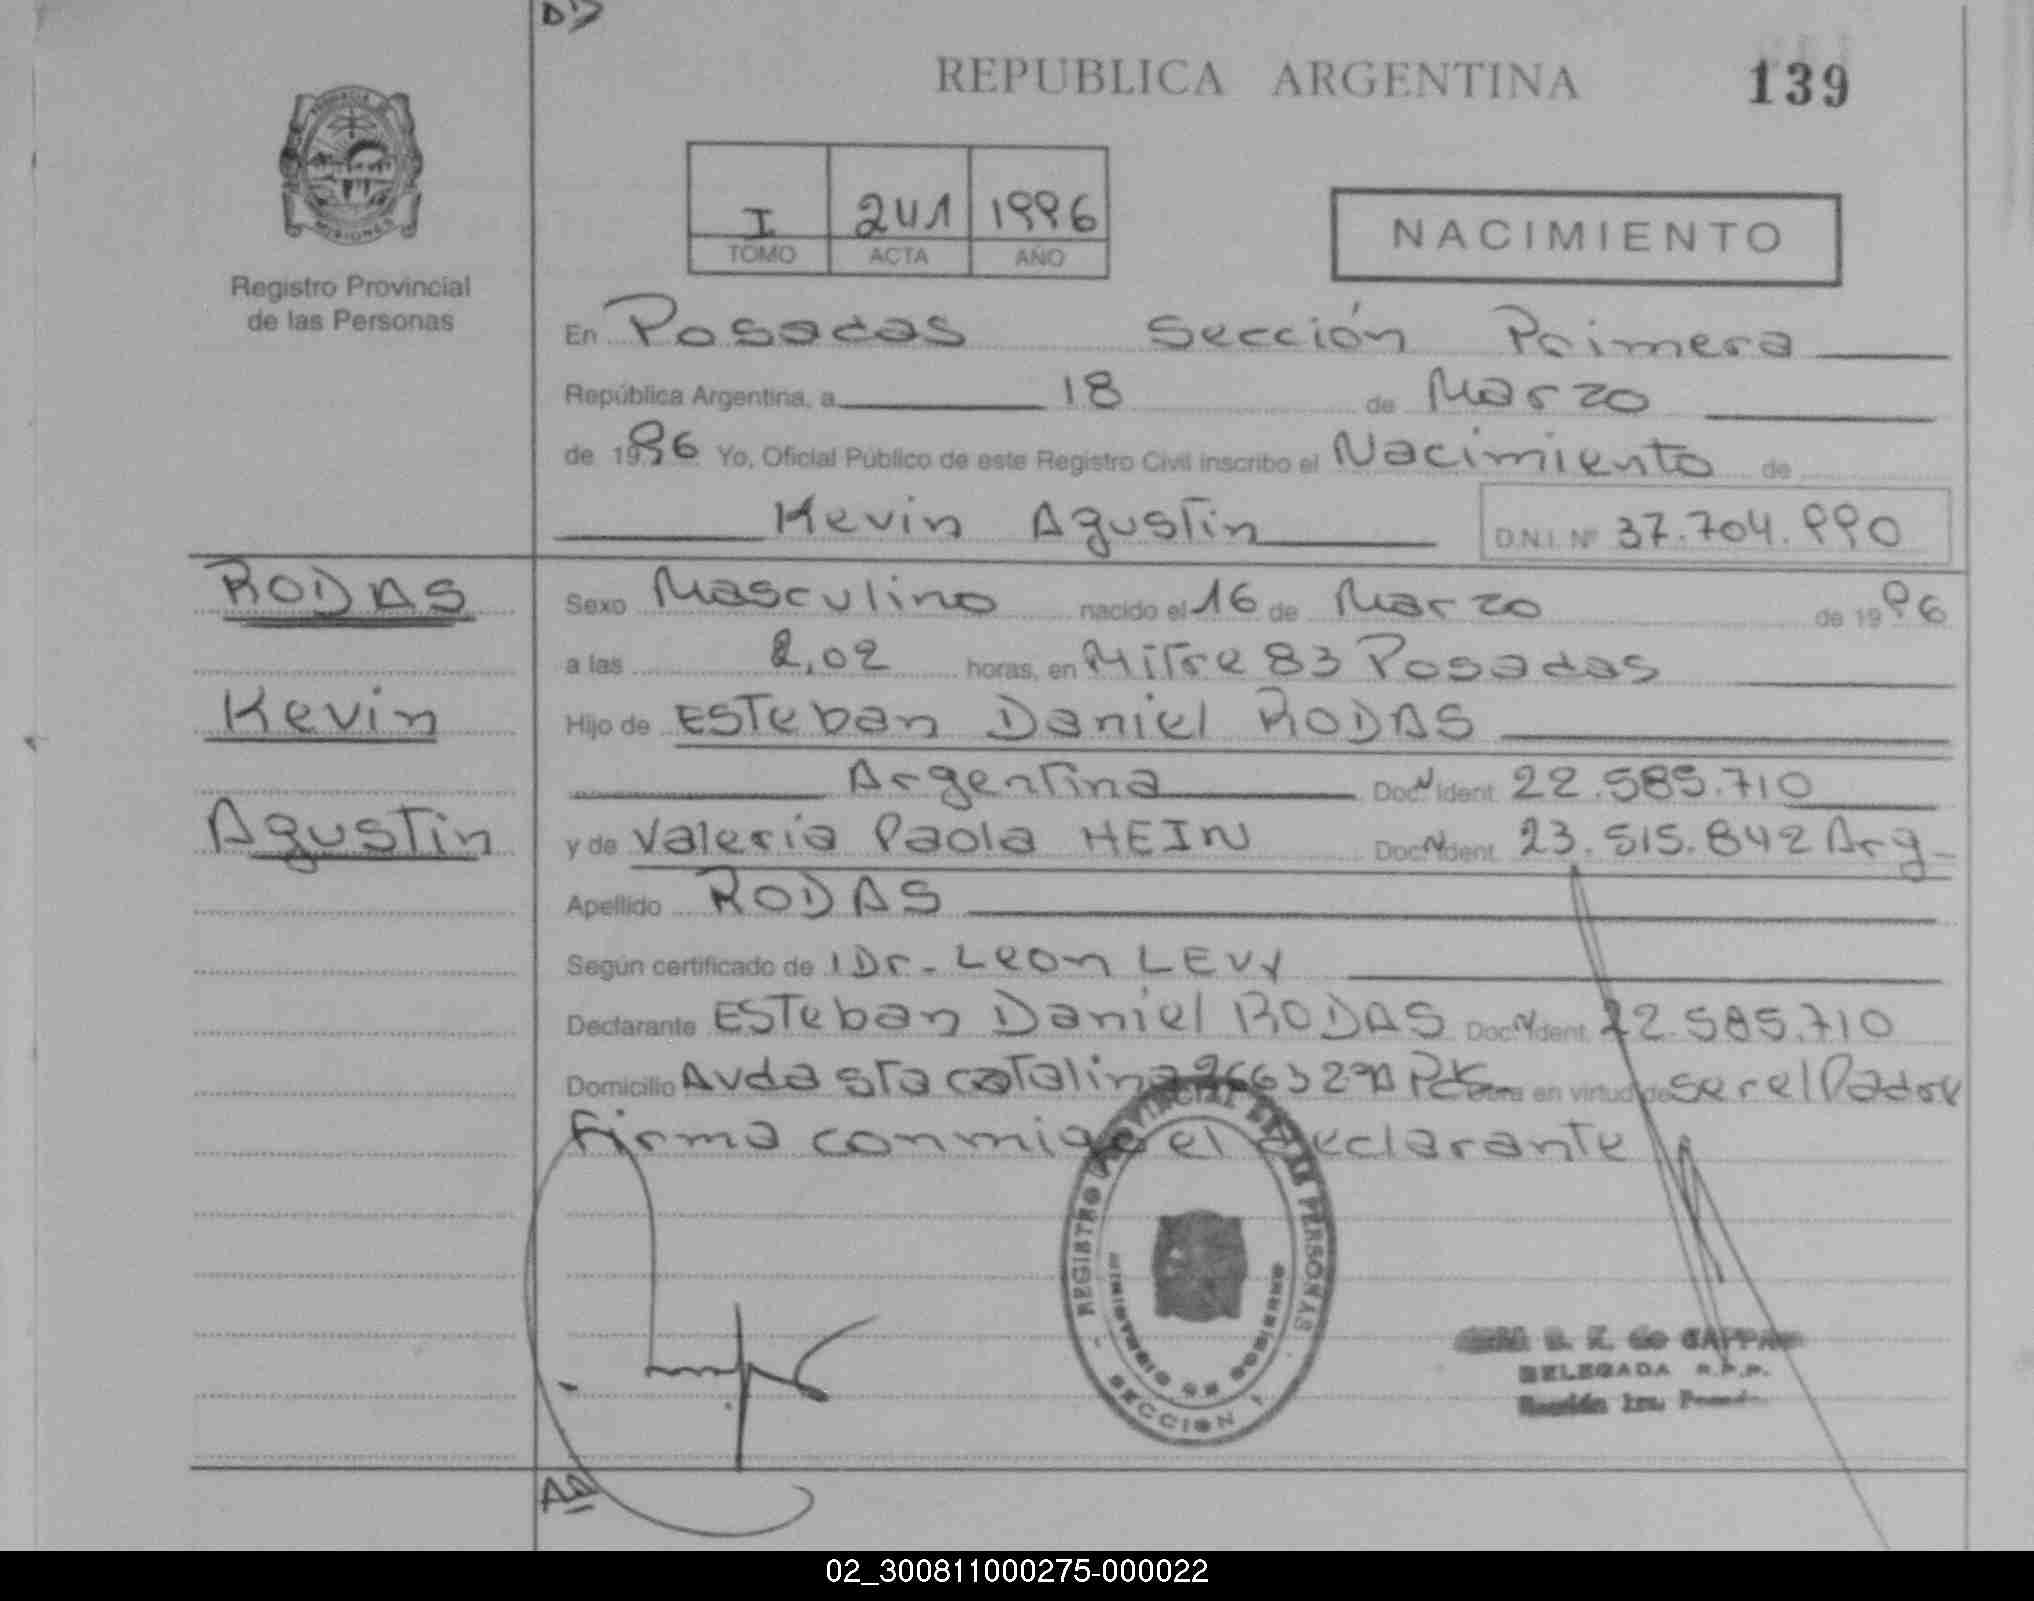 REPUBLICA ARGENTINA 139
I 241 1996
TOMO ACTA AÑO
NACIMIENTO
Registro Provincial
de las Personas
En Posadas Sección Primera
República Argentina, a 18 de Marzo
de 1996 Yo, Oficial Público de este Registro Civil inscribo el Nacimiento de
Kevin Agustin D.N.I. Nº 37.704.990
RODAS
Kevin
Agustin
Sexo Masculino nacido el 16 de Marzo de 1996
a las 2,02 horas, en Mitre 83 Posadas
Hijo de Esteban Daniel RODAS
Argentina Doc. Ident. 22.585.710
y de Valeria Paola HEIN Doc. Ident. 23.515.842 Arg-
Apellido RODAS
Según certificado de Dr. Leon LEVY
Declarante Esteban Daniel RODAS Doc. Ident. 22.585.710
Domicilio Avda Sta Catalina en virtud de ser el Padre
Firma conmigo el declarante
REGISTRO PROVINCIAL DE LAS PERSONAS
MINISTERIO DE GOBIERNO
SECCION 1
DELEGADA R.P.P.
02_300811000275-000022